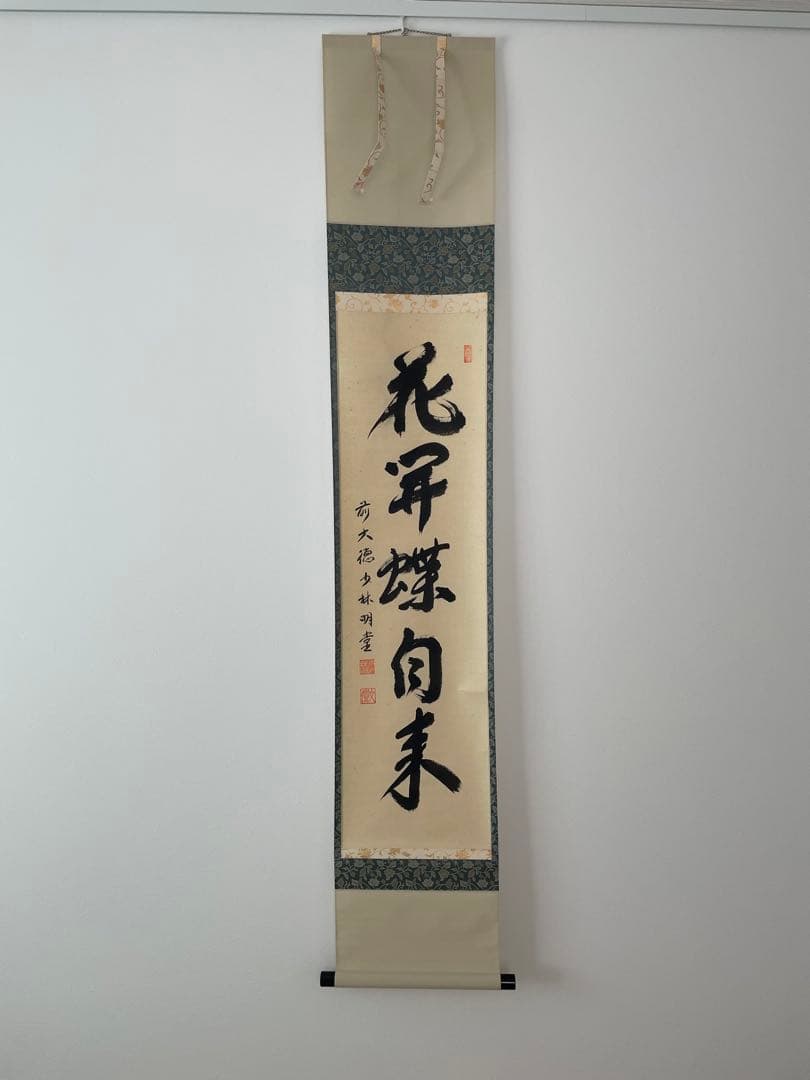 花開蝶自来
前大徳少林明堂